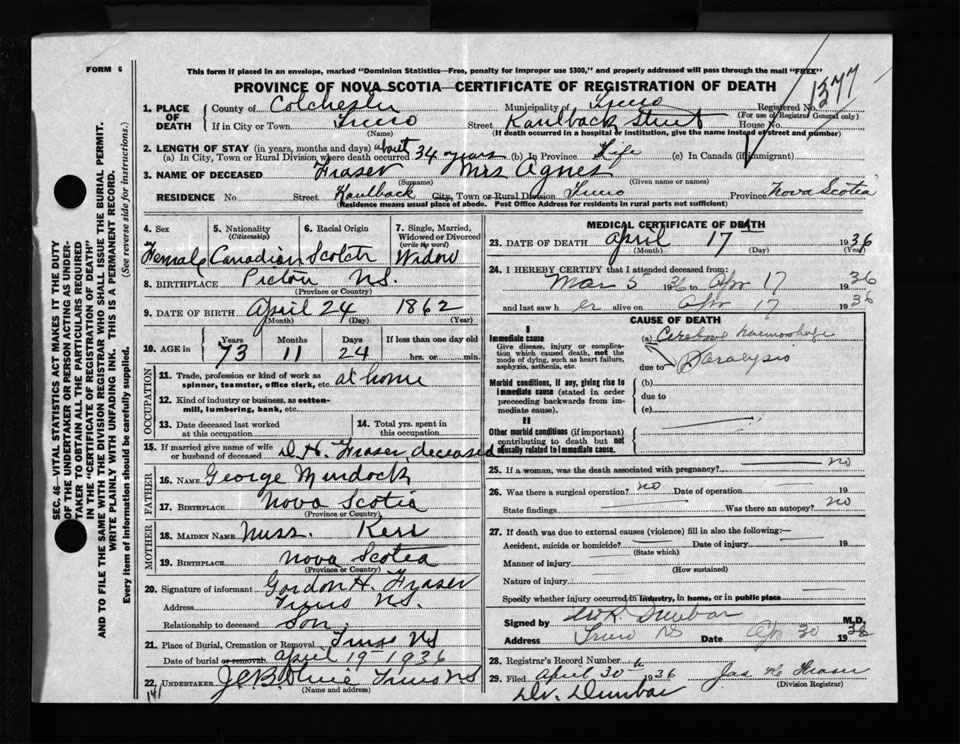 FORM 6
This form if placed in an envelope, marked "Dominion Statistics—Free, penalty for improper use $300," and properly addressed will pass through the mail "FREE"
PROVINCE OF NOVA SCOTIA—CERTIFICATE OF REGISTRATION OF DEATH
1377
1. PLACE OF DEATH
County of Colchester Municipality of Truro Registered No.
(For use of Registrar General only)
If in City or Town Truro Street Kaulback Street House No.
(Name) (If death occurred in a hospital or institution, give the name instead of street and number)
2. LENGTH OF STAY (in years, months and days)
(a) In City, Town or Rural Division where death occurred about 34 years (b) In Province Life (c) In Canada (if immigrant)
3. NAME OF DECEASED Fraser Mrs Agnes
(Surname) (Given name or names)
RESIDENCE No Street Kaulback City, Town or Rural Division Truro Province Nova Scotia
(Residence means usual place of abode. Post Office Address for residents in rural parts not sufficient)
4. Sex
Female
5. Nationality
(Citizenship)
Canadian
6. Racial Origin
Scotch
7. Single, Married, Widowed or Divorced
(write the word)
Widow
8. BIRTHPLACE Pictou NS.
(Province or Country)
9. DATE OF BIRTH April 24 1862
(Month) (Day) (Year)
10. AGE in
Years Months Days If less than one day old
73 11 24 hrs. or min.
OCCUPATION
11. Trade, profession or kind of work as spinner, teamster, office clerk, etc. at home
12. Kind of industry or business, as cotton-mill, lumbering, bank, etc.
13. Date deceased last worked at this occupation
14. Total yrs. spent in this occupation
15. If married give name of wife or husband of deceased D. H. Fraser, deceased
FATHER
16. NAME George Murdock
17. BIRTHPLACE Nova Scotia
(Province or Country)
MOTHER
18. MAIDEN NAME Miss. Kerr
19. BIRTHPLACE Nova Scotia
(Province or Country)
20. Signature of informant Gordon H. Fraser
Address Truro NS.
Relationship to deceased Son
21. Place of Burial, Cremation or Removal Truro NS
Date of burial or removal April 19 1936
22. UNDERTAKER Truro NS
(Name and address)
141
MEDICAL CERTIFICATE OF DEATH
23. DATE OF DEATH April 17 1936
(Month) (Day) (Year)
24. I HEREBY CERTIFY that I attended deceased from:
Mar 5 1936 to Apr 17 1936
and last saw her alive on Apr 17 1936
CAUSE OF DEATH
I
Immediate cause
Give disease, injury or complication which caused death, not the mode of dying, such as heart failure, asphyxia, asthenia, etc.
(a) Cerebral haemorrhage
due to Paralysis
Morbid conditions, if any, giving rise to immediate cause (stated in order preceding backwards from immediate cause).
(b)
due to
(c)
II
Other morbid conditions (if important) contributing to death but not causally related to immediate cause.
25. If a woman, was the death associated with pregnancy? no
26. Was there a surgical operation? no Date of operation 19
State findings Was there an autopsy? no
27. If death was due to external causes (violence) fill in also the following:—
Accident, suicide or homicide? Date of injury 19
(State which)
Manner of injury
(How sustained)
Nature of injury
Specify whether injury occurred in industry, in home, or in public place
Signed by Dunbar M.D.
Address Truro NS Date Apr 30 1936
28. Registrar's Record Number
29. Filed April 30 1936 Fraser
(Division Registrar)
Dr. Dunbar
SEC. 46—VITAL STATISTICS ACT MAKES IT THE DUTY
OF THE UNDERTAKER OR PERSON ACTING AS UNDER-
TAKER TO OBTAIN ALL THE PARTICULARS REQUIRED
IN THE "CERTIFICATE OF REGISTRATION OF DEATH"
AND TO FILE THE SAME WITH THE DIVISION REGISTRAR WHO SHALL ISSUE THE BURIAL PERMIT.
WRITE PLAINLY WITH UNFADING INK. THIS IS A PERMANENT RECORD.
Every item of information should be carefully supplied. (See reverse side for instructions.)